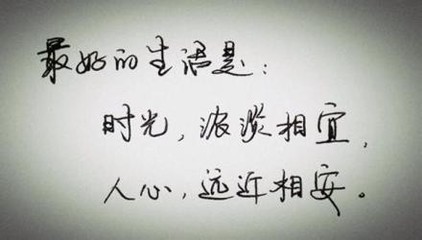 最好的生活是：
时光，浓淡相宜，
人心，远近相安。